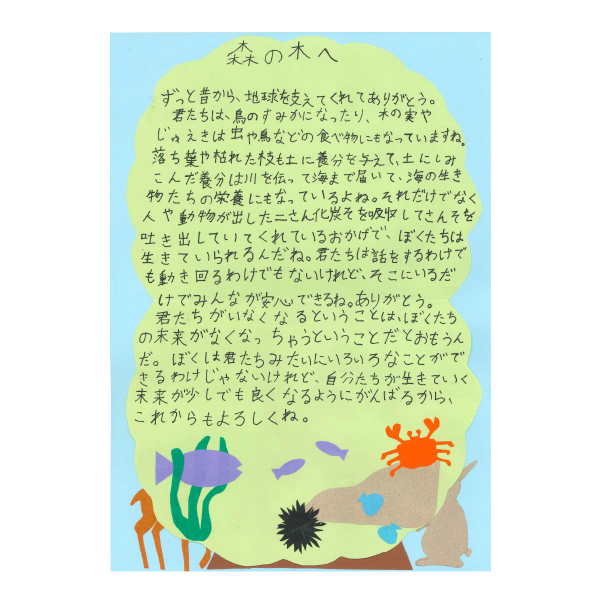 森の木へ
ずっと昔から、地球を支えてくれてありがとう。
君たちは、鳥のすみかになったり、木の実や
じゅえきは虫や鳥などの食べ物にもなっていますね。
落ち葉や枯れた枝も土に養分を与えて、土にしみ
こんだ養分は川を伝って海まで届いて、海の生き
物たちの栄養にもなっているよね。それだけでなく
人や動物が出した二さん化炭そを吸収してさんそを
吐き出していてくれているおかげで、ぼくたちは
生きていられるんだね。君たちは話をするわけで
も動き回るわけでもないけれど、そこにいるだ
けでみんなが安心できるね。ありがとう。
君たちがいなくなるということは、ぼくたち
の未来がなくなっちゃうということだとおもうん
だ。ぼくは君たちみたいにいろいろなことがで
きるわけじゃないけれど、自分たちが生きていく
未来が少しでも良くなるようにがんばるから、
これからもよろしくね。